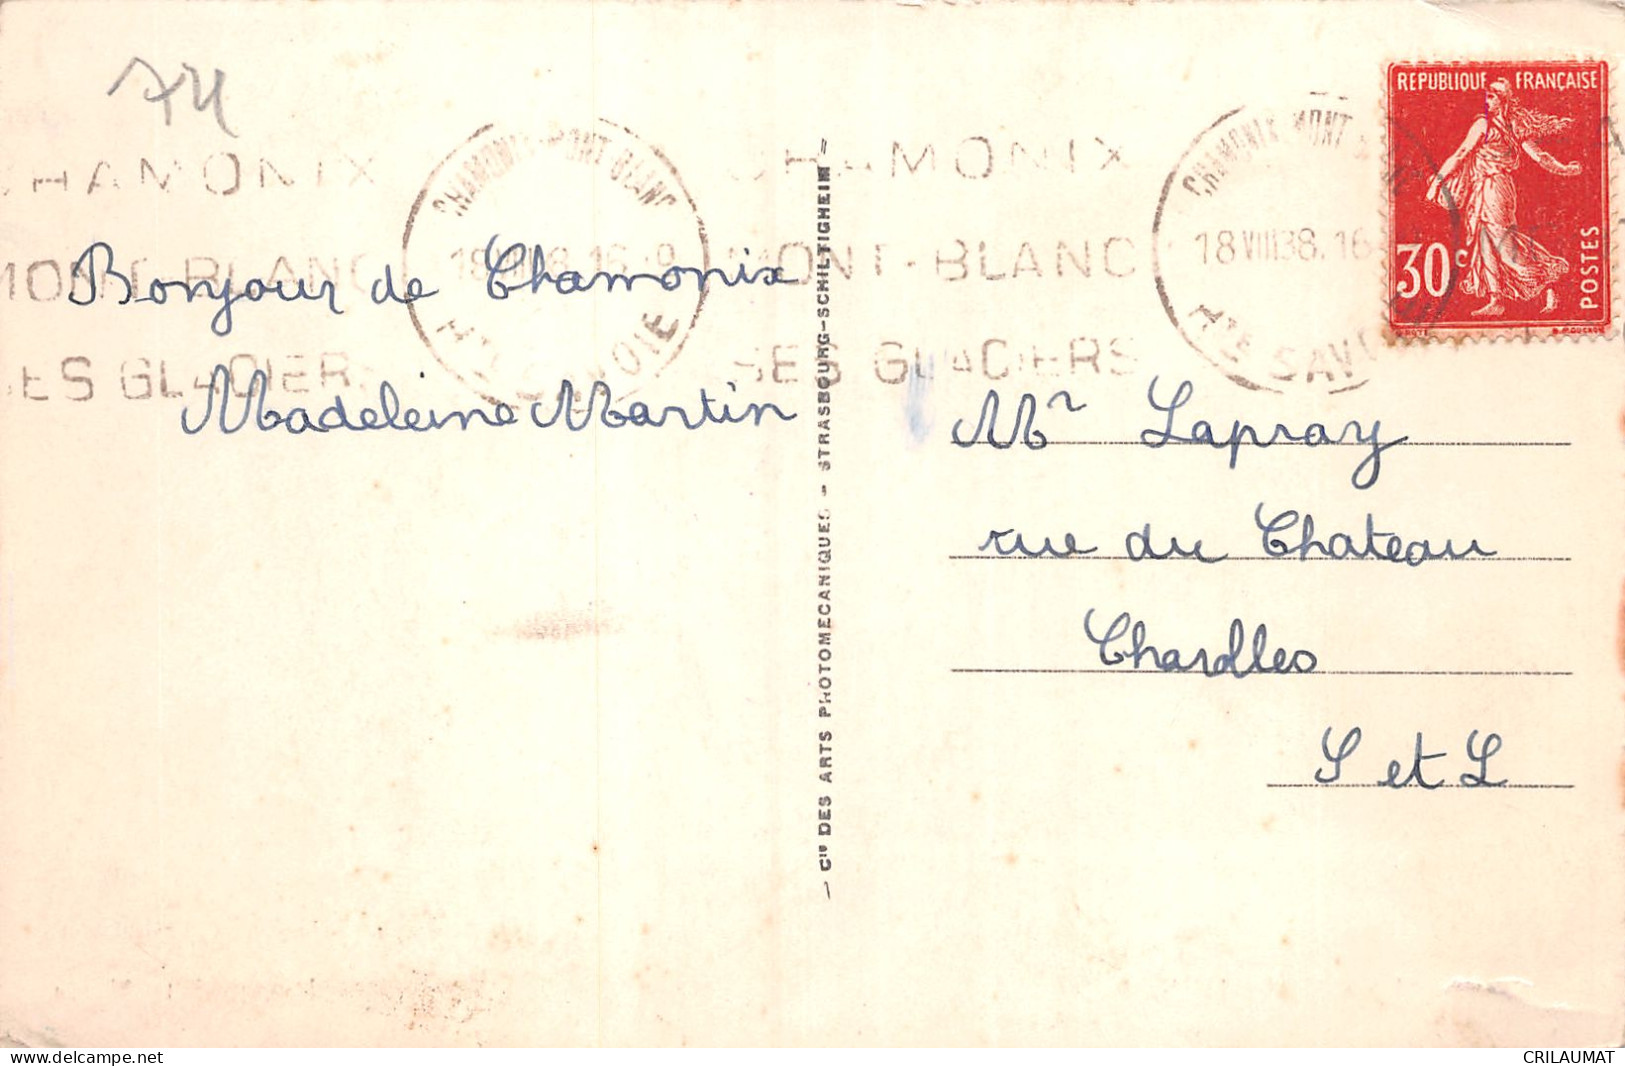 74
CHAMONIX
MONT-BLANC
SES GLACIERS
CHAMONIX-MONT-BLANC
Hte SAVOIE
CHAMONIX
MONT-BLANC
SES GLACIERS
CHAMONIX MONT
18 VIII 38. 16
Hte SAVOIE
REPUBLIQUE FRANÇAISE
30c
POSTES
Bonjour de Chamonix
Madeleine Martin
- Cie DES ARTS PHOTOMECANIQUES - STRASBOURG-SCHILTIGHEIM -
Mr Lapray
rue du Chateau
Charolles
S et L
www.delcampe.net
CRILAUMAT